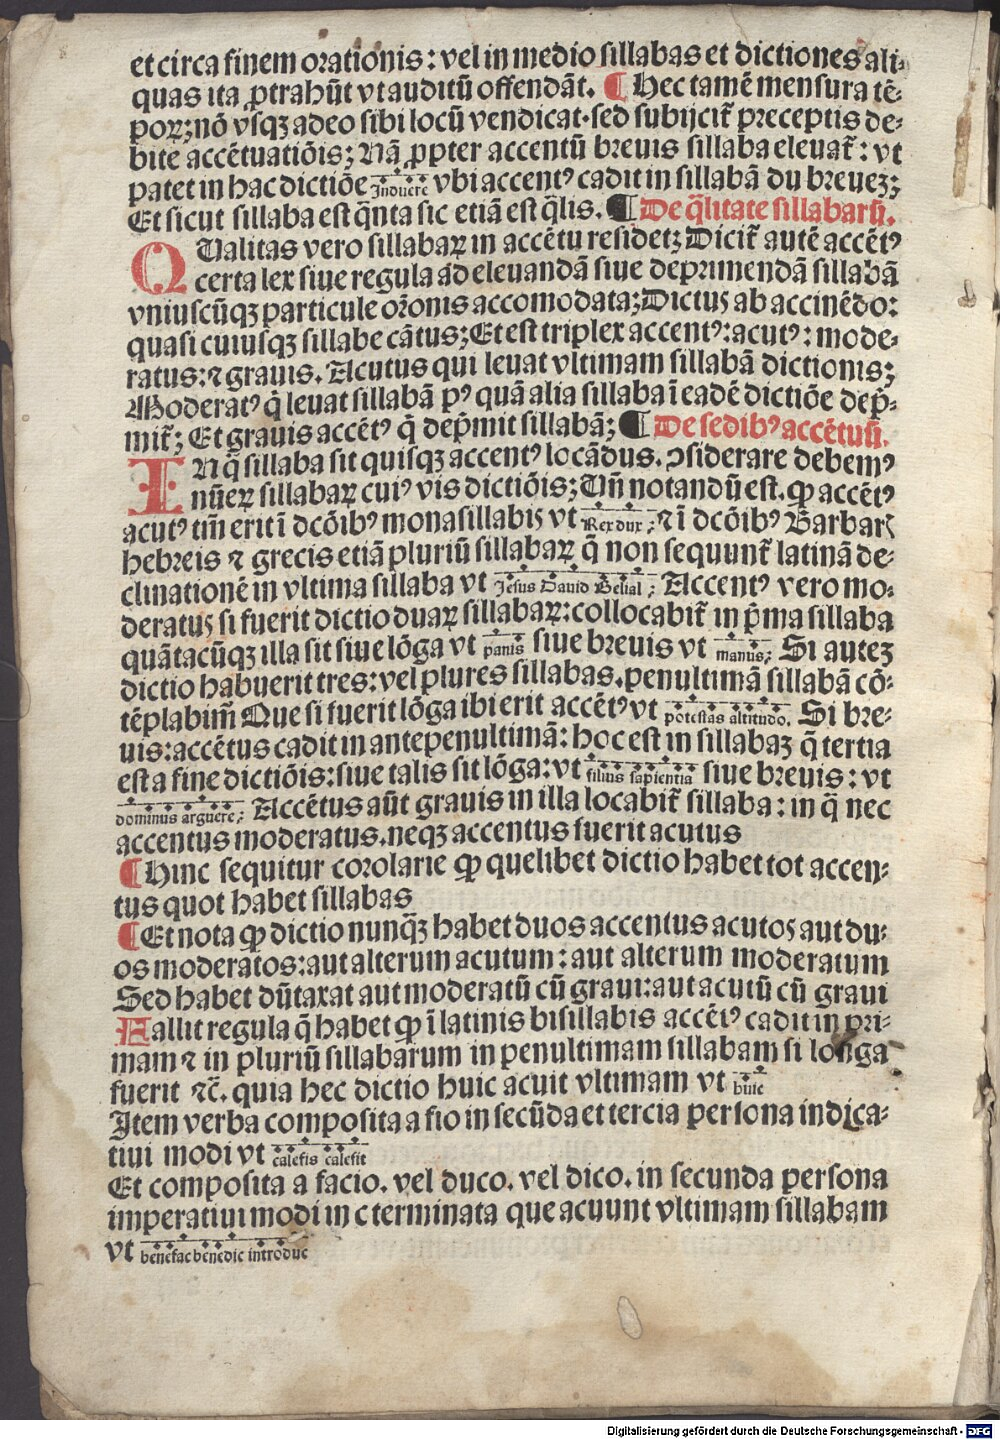 et circa finem orationis: vel in medio sillabas et dictiones ali-
quas ita ꝓtrahūt vt auditū offendāt. ¶ Hec tamē mensura tē-
poꝝ; nō vsqꝫ adeo sibi locū vendicat. sed subijcit᷑ preceptis de-
bite accētuatiōis; Nā ꝓpter accentū breuis sillaba eleuat᷑: vt
patet in hac dictiōe Induere vbi accentꝰ cadit in sillabā du breueꝫ;
Et sicut sillaba est q̄nta sic etiā est q̄lis. ¶ De q̄litate sillabarū.
QUalitas vero sillabaꝝ in accētu residet; Dicit᷑ autē accētꝰ
certa lex siue regula ad eleuandā siue deprimendā sillabā
vniuscūqꝫ particule or̄onis accomodata; Dictus ab accinēdo:
quasi cuiusqꝫ sillabe cātus; Et est triplex accentꝰ: acutꝰ: mode-
ratus: ⁊ grauis. Acutus qui leuat vltimam sillabā dictionis;
Moderatꝰ q̄ leuat sillabā pꝰ quā alia sillaba ī eadē dictiōe dep̄-
mit᷑; Et grauis accētꝰ q̄ dep̄mit sillabā; ¶ De sedibꝰ accētuū.
IN q̄ sillaba sit quisqꝫ accentꝰ locādus. ꝯsiderare debemꝰ
nūeꝝ sillabaꝝ cuiꝰ vis dictiōis; Uñ notandū est. ꝙ accētꝰ
acutꝰ tm̄ erit ī dcōibꝰ monasillabis vt Rex dux; ⁊ ī dcōibꝰ Barbar᷑
hebreis ⁊ grecis etiā pluriū sillabaꝝ q̄ non sequunt᷑ latinā de-
clinationē in vltima sillaba vt Jesus Dauid Belial; Accentꝰ vero mo-
deratus si fuerit dictio duaꝝ sillabaꝝ: collocabit᷑ in p̄ma sillaba
quātacūqꝫ illa sit siue lōga vt panis siue breuis vt manus; Si auteꝫ
dictio habuerit tres: vel plures sillabas. penultimā sillabā cō-
tēplabim̄ Que si fuerit lōga ibi erit accētꝰ vt potestas altitudo. Si bre-
uis: accētus cadit in antepenultimā: hoc est in sillabaꝫ q̄ tertia
est a fine dictiōis: siue talis sit lōga: vt filius sapientia siue breuis: vt
dominus arguere; Accētus aūt grauis in illa locabit᷑ sillaba: in q̄ nec
accentus moderatus. neqꝫ accentus fuerit acutus
¶ Hinc sequitur corolarie ꝙ quelibet dictio habet tot accen-
tus quot habet sillabas
¶ Et nota ꝙ dictio nunq̄ꝫ habet duos accentus acutos aut du-
os moderatos: aut alterum acutum: aut alterum moderatum
Sed habet dūtaxat aut moderatū cū graui: aut acutū cū graui
Fallit regula q̄ habet ꝙ ī latinis bisillabis accētꝰ cadit in pri-
mam ⁊ in pluriū sillabarum in penultimam sillabam si longa
fuerit ⁊c̄. quia hec dictio huic acuit vltimam vt huic
Item verba composita a fio in secūda et tercia persona indica-
tiui modi vt calefis calefit
Et composita a facio. vel duco. vel dico. in secunda persona
imperatiui modi in c terminata que acuunt vltimam sillabam
vt benefac benedic introduc
Digitalisierung gefördert durch die Deutsche Forschungsgemeinschaft - DFG